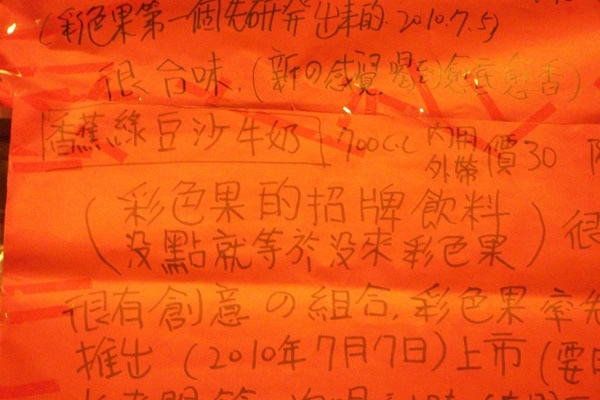 (彩色果第一個先研發出來的.2010.7.5)
很合味.(新の感覺,喝到愈喜愈香)
香蕉綠豆沙牛奶 700c.c 內用外帶價30
(彩色果的招牌飲料
沒點就等於沒來彩色果)很
很有創意の組合.彩色果率先
推出(2010年7月7日)上市(要